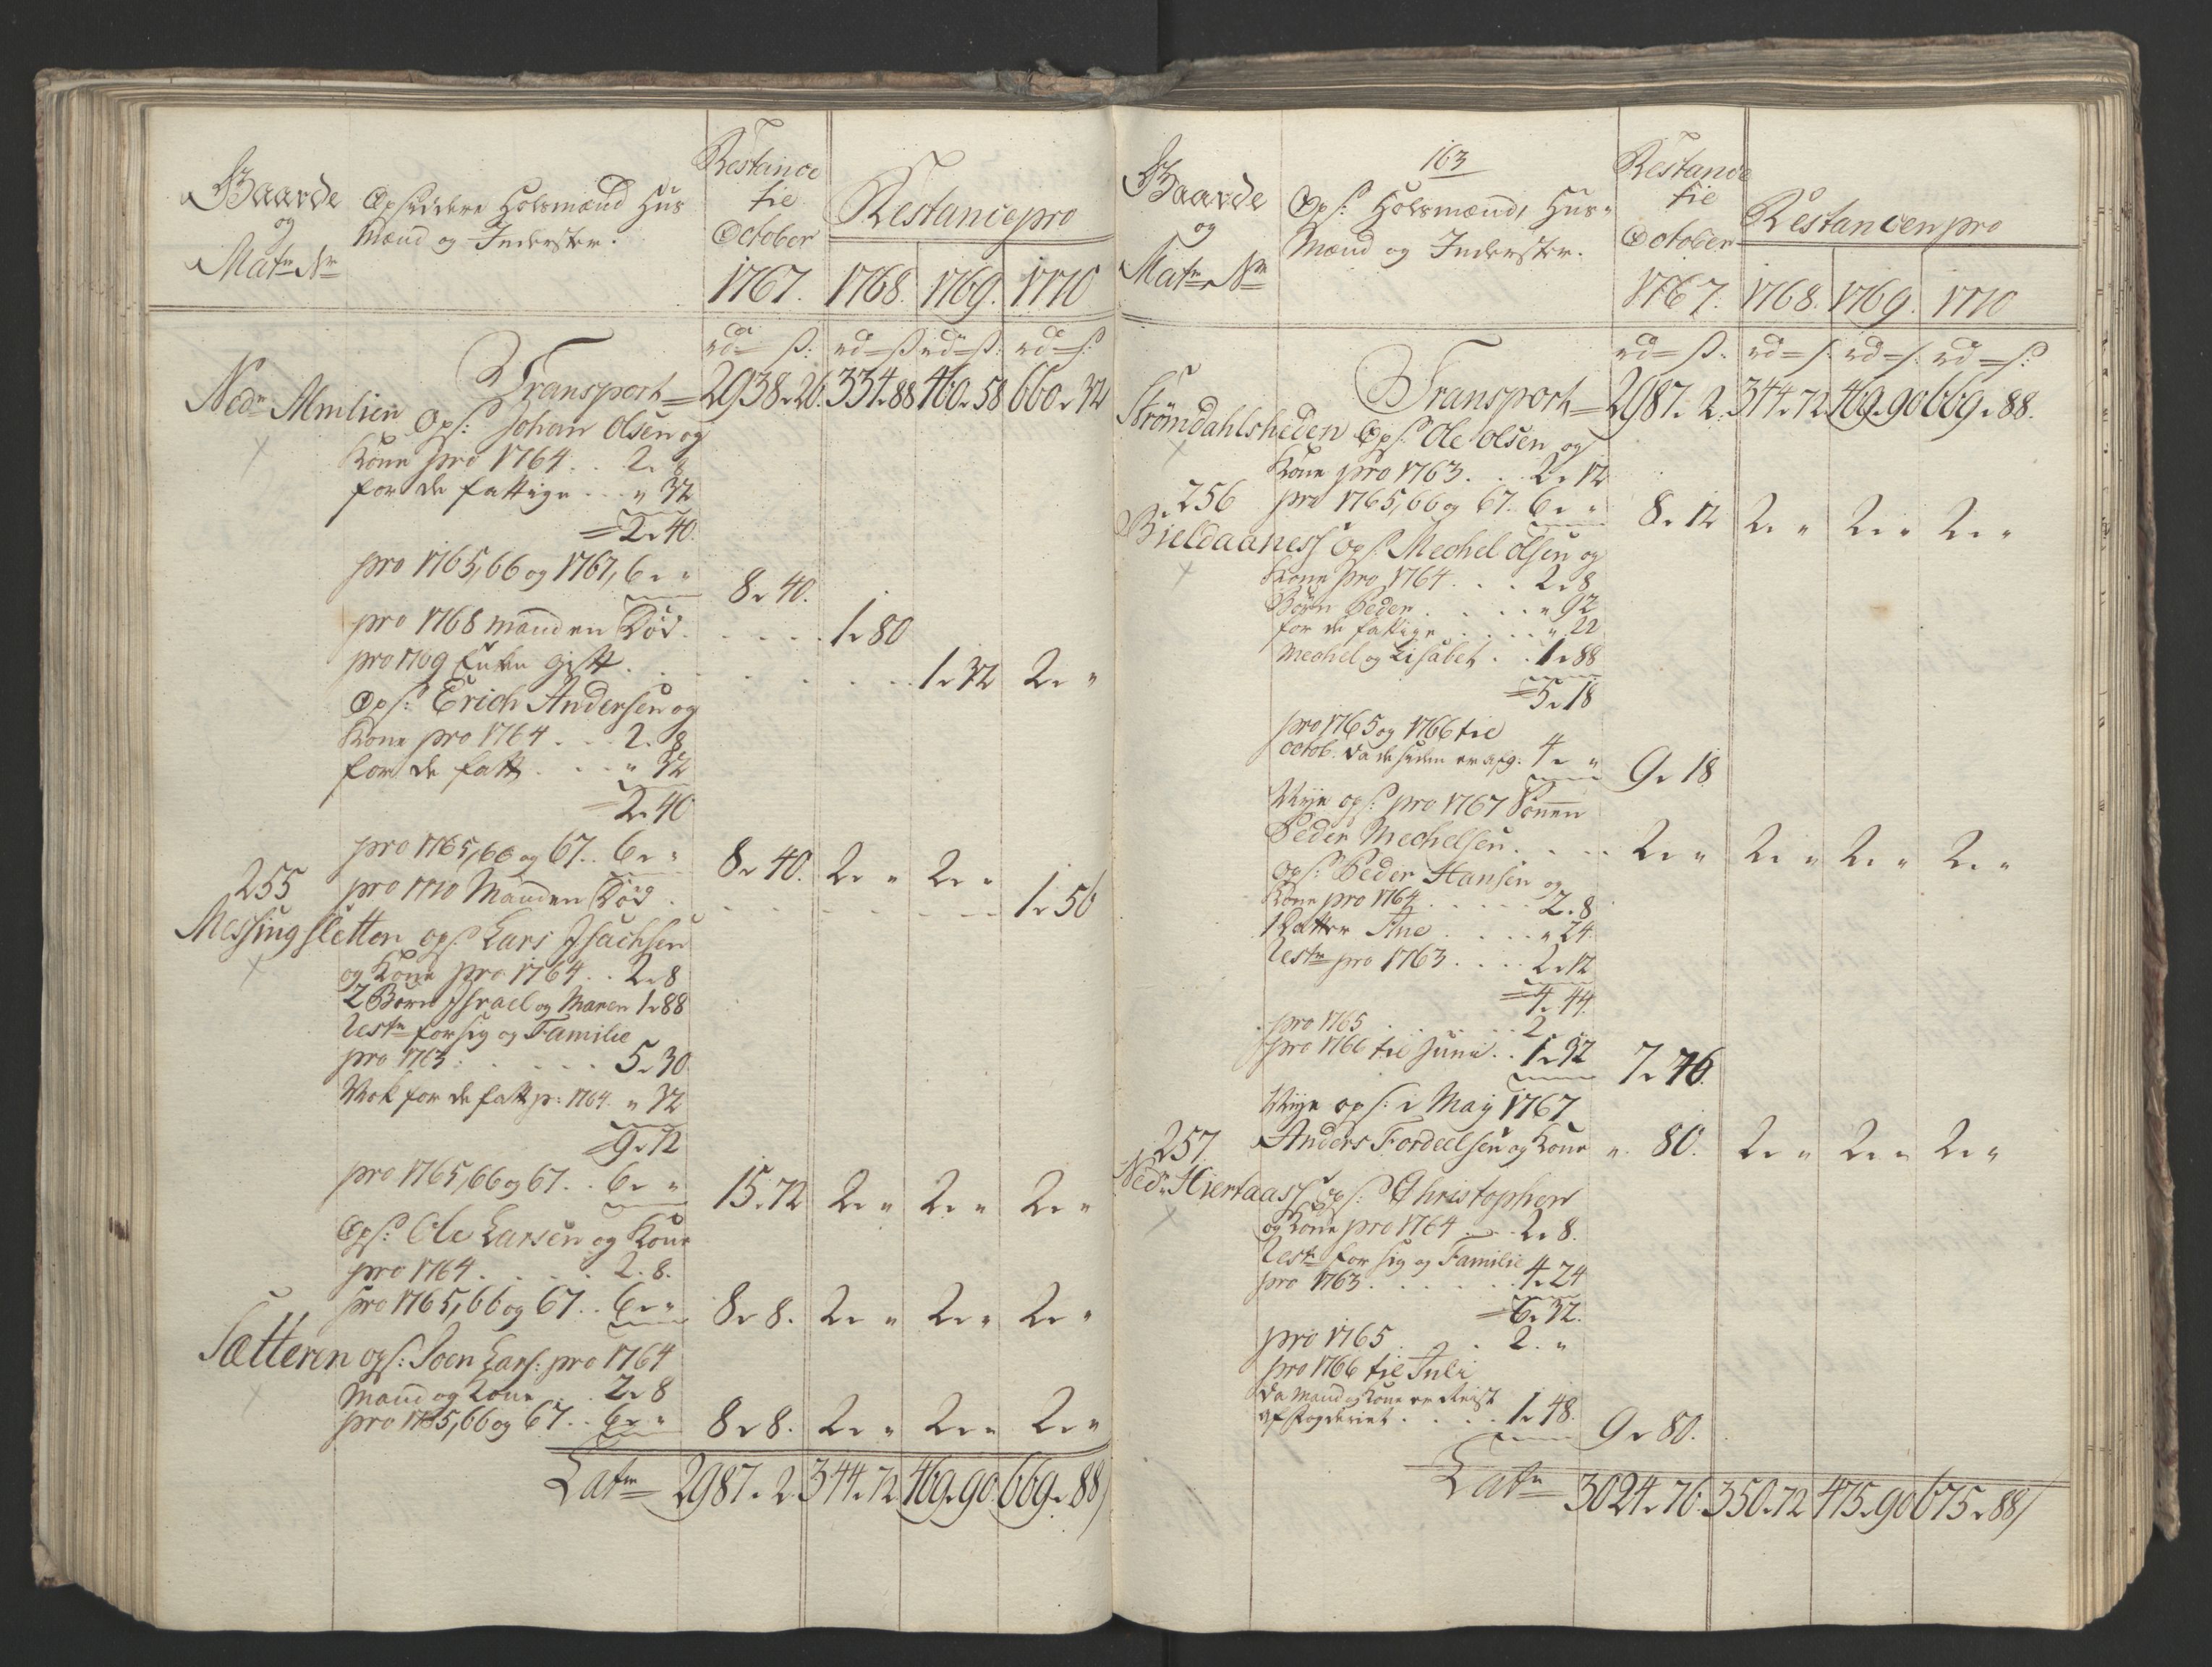 Gaarde
og
Matr Nr
Opsiddere Holsmænd Hus
Mænd og Inderster.
Restance
til
October
1767.
Restance pro
1768. 1769. 1770
rd ß: rd ß rd ß: rd ß:
Transport 2938 26. 334 88 460 58 660 32
Nedr Almlien Ops: Johan Olsen og
Kone pro 1764 . . 2 8
for de fattige . . " 32
2 40.
pro 1765, 66 og 1767, 6 " 8 40.
pro 1768 manden Død . . . . 1 80
pro 1769 Enken gift . . . . 1 32 2 "
Ops: Erich Andersen og
Kone pro 1764 . . . 2. 8
for de fatt . . . " 32
2 40
pro 1765, 66 og 67 . . 6 " 8 40. 2 " 2 "
255 pro 1770 Manden Død . . . . 1 56
Messingsletten ops: Lars Isachsen
og Kone pro 1764 . . 2 8
2 Børn Israel og Maren 1 88
Restr for sig og Familie
pro 1763 : . . . . 5 30
Nok for de fatt p: 1764. " 32
9 72
pro 1765, 66 og 67 . . 6 " 15 72 2 " 2 " 2 "
Ops: Ole Larsen og Kone
pro 1764 . . . . 2. 8.
pro 1765, 66 og 67 . . 6 " 8 8. 2 " 2 " 2 "
Sætteren ops: Joen Lars: pro 1764
Mand og Kone . . 2 8
pro 1765, 66 og 67 . . 6 " 8 8. 2 " 2 " 2 "
Latr 2987. 2 344. 72 469. 90. 669. 88
163
Gaarde
og
Matr Nr
Ops: Holsmænd, Hus-
Mænd og Inderster.
Restance
til
October
1767.
Restancen pro
1768. 1769. 1770
rd ß: rd ß: rd ß: rd ß:
Transport 2987. 2. 344. 72 469. 90 669. 88.
Strømdahlsheden Ops: Ole Olsen og
Kone pro 1763 . . 2 12
256 pro 1765, 66 og 67. 6 " 8 12 2 " 2 " 2 "
Bieldaaness Ops: Mechel Olsen og
Kone pro 1764 . . . 2 8
Børn Peder . . . . " 92
for de fattige . . . . " 22
Mechel og Lisabet . . 1 88
5 18
pro 1765 og 1766 til
octob. da de siden er afg: 4 " 9 18
Nye ops: pro 1767 Sønnen
Peder Mechelsen . . . . 2 " 2 " 2 " 2 "
Ops: Peder Hansen og
Kone pro 1764 . . . . . 2. 8
1 Datter Ane . . . . " 24
Restr pro 1763 . . . . 2 12
4 44.
pro 1765 . . . . . 2
pro 1766 til Juni . . 1 32 7 76.
Nye ops: i May 1767
257. Anders Fordeelsen og Kone " 80. 2 " 2 " 2 "
Nedr Hiertaass ops: Christopher
og Kone pro 1764 . . . 2 8.
Restr for sig og Familie
pro 1763 . . . . . 4 24
6 32.
pro 1765 . . . 2. "
pro 1766 til Juli
da Mand og Kone er Reist
af Fogderiet . . . . 1 48. 9 80.
Latr 3024 76. 350. 72 475. 90 675. 88